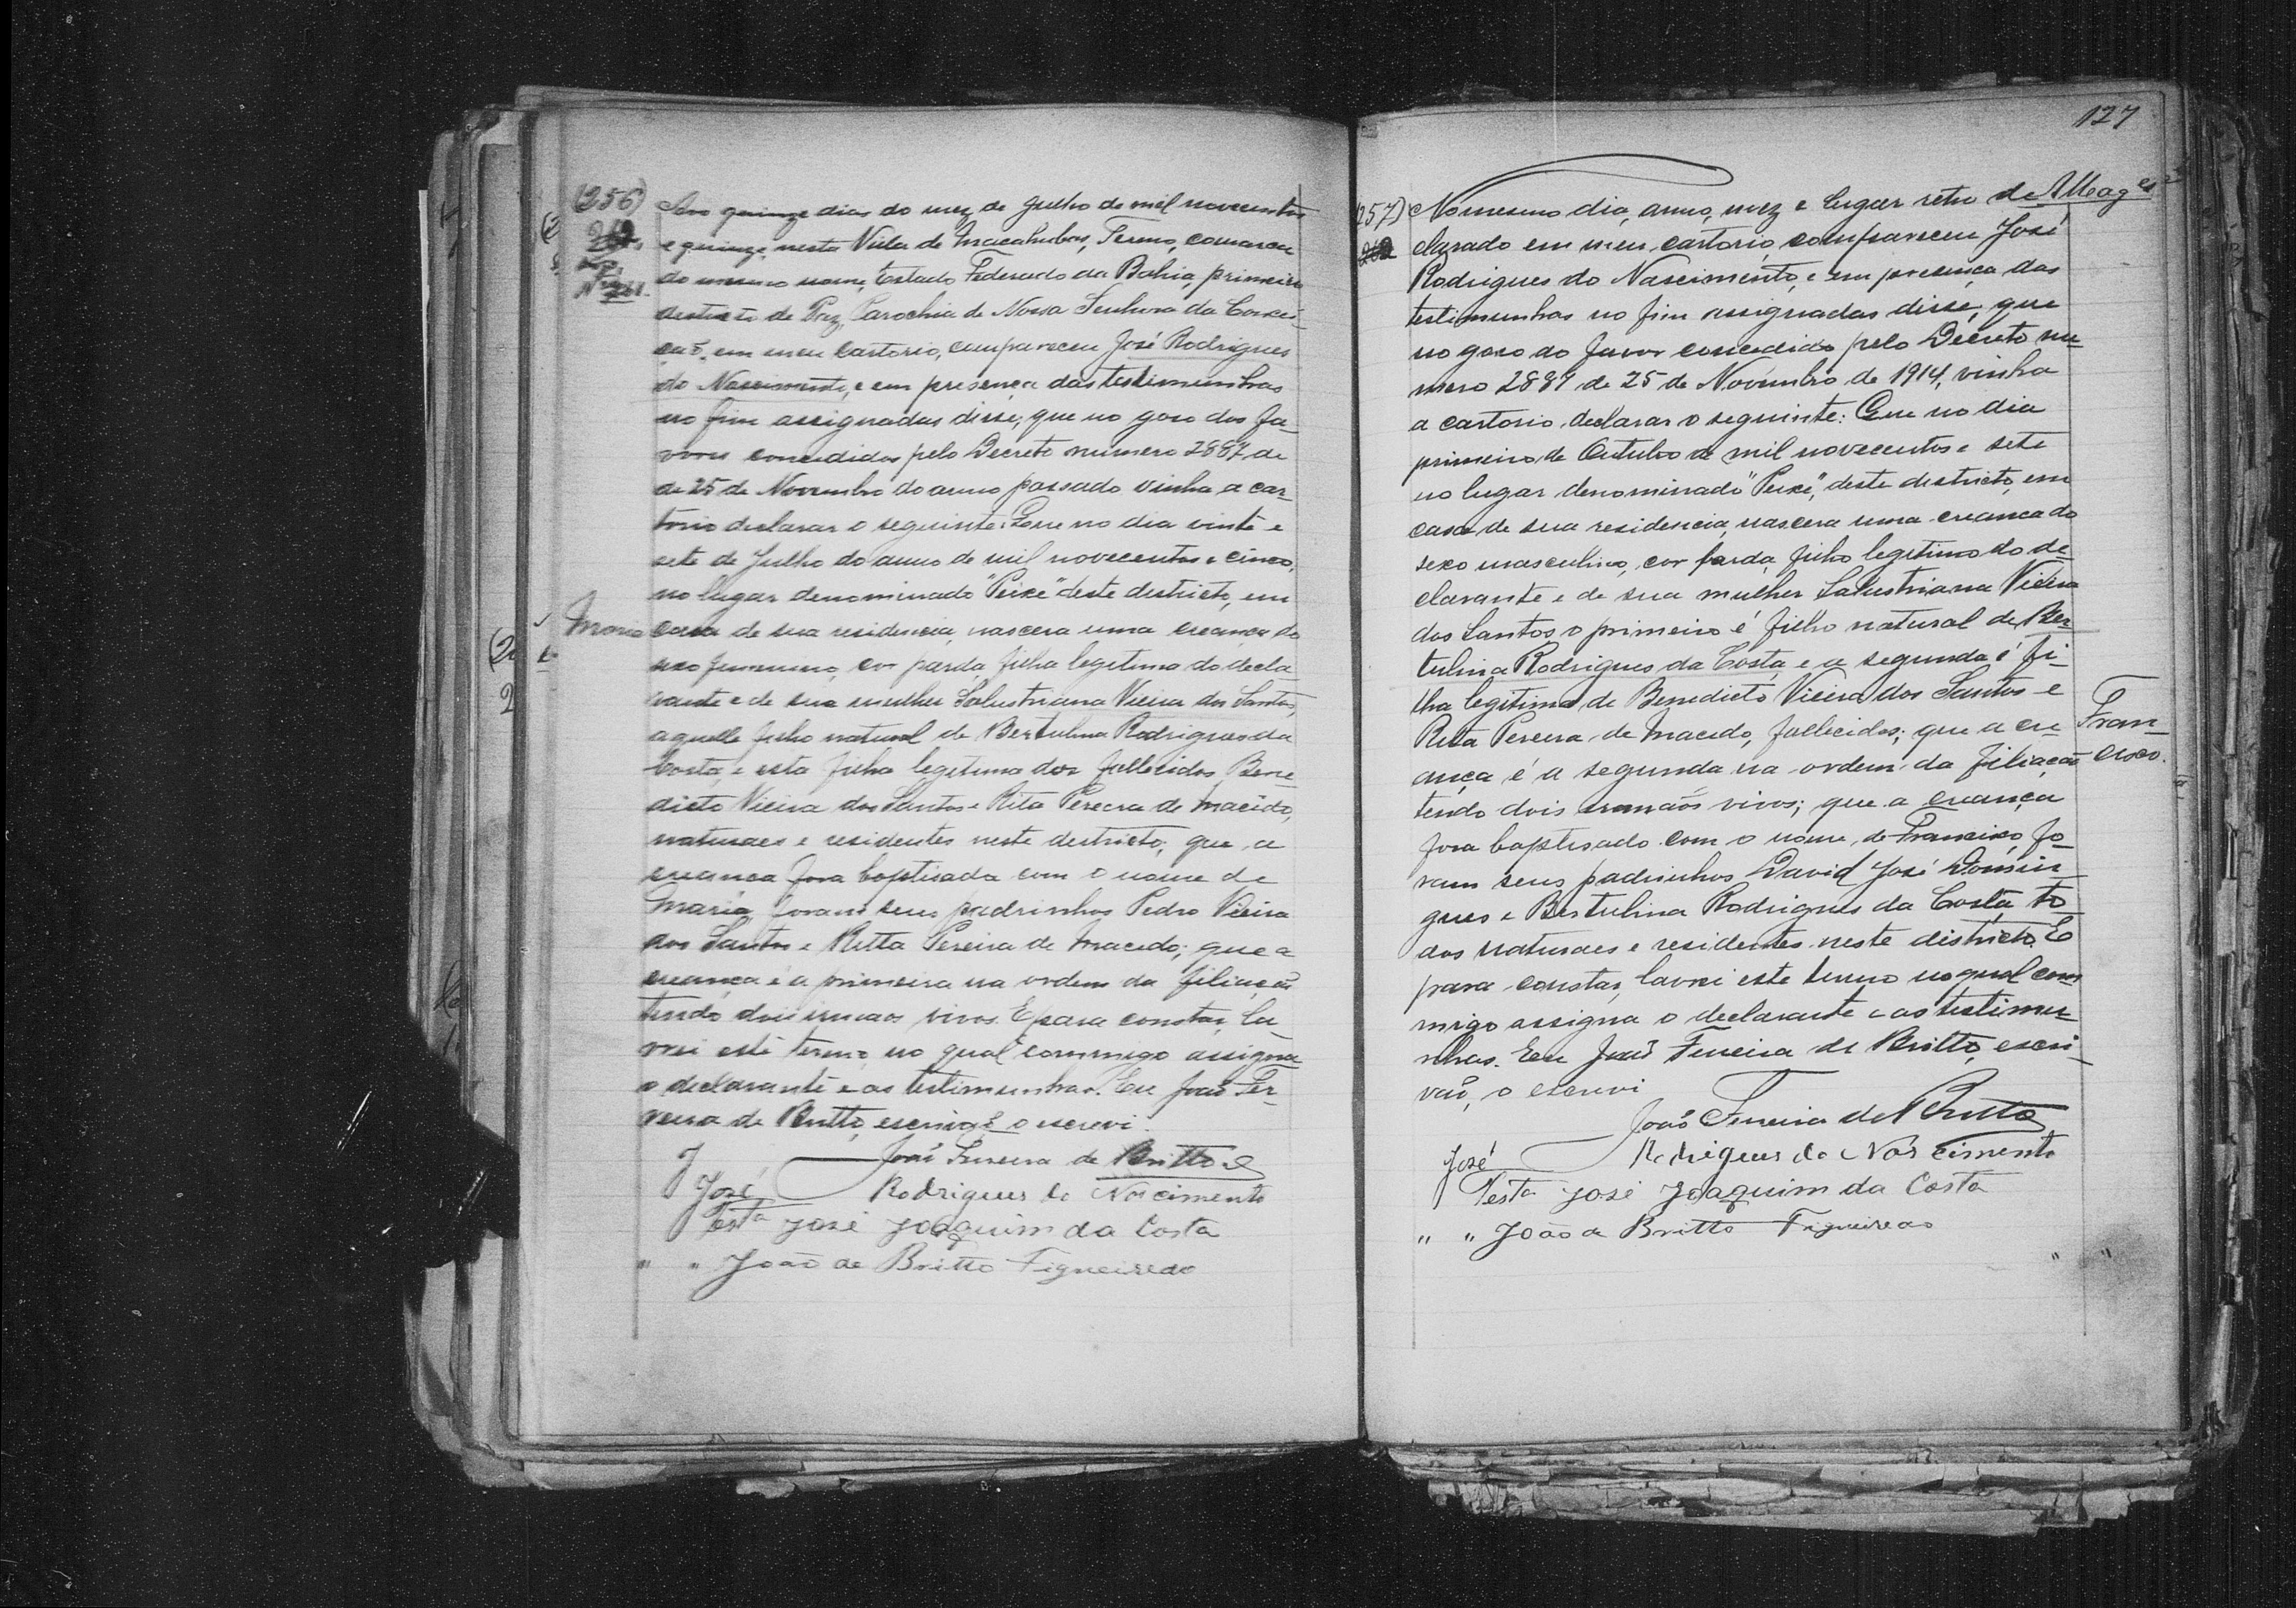 (256)
Aos quinze dias do mez de Julho de mil novecentos
e quinze, nesta Villa de Macahubas, Termo, comarca
do mesmo nome, Estado Federado da Bahia, primeiro
districto de Paz, Parochia de Nossa Senhora da Concei-
ção, em meu Cartorio, compareceu José Rodrigues
do Nascimento, e em presença das testimunhas
no fim assignadas disse; que no goso dos fa-
vores concedidos pelo Decreto numero 2887 de
de 25 de Novembro do anno passado vinha a car-
torio declarar o seguinte: Que no dia vinte e
sete de Julho do anno de mil novecentos e cinco,
no lugar denominado "Peixe" deste districto, em
Maria
casa de sua residencia, nascera uma creança do
sexo feminino, cor parda, filha legitima do decla
rante e de sua mulher Salustriana Vieira dos Santos,
aquelle filho natural de Bertulina Rodrigues da
Costa, e esta filha legitima dos fallecidos Bene
dicto Vieira dos Santos e Rita Pereira de Macêdo,
naturaes e residentes neste destricto; que a
creança fora baptisada com o nome de
Maria, foram seus padrinhos Pedro Vieira
dos Santos e Ritta Pereira de Macedo; que a
creança é a primeira na ordem da filiação
tendo dois irmaos vivos. E para constar, la
vrei este termo no qual commigo assigna
o declarante e as testimunhas. Eu João Fer-
reira de Britto, escrivão o escrevi.
João Ferreira de Britto
José Rodrigues do Nascimento
Testa José Joaquim da Costa
" " João de Britto Figueiredo
127
257)
No mesmo dia, anno, mez e lugar retro de
clarado em meu cartorio, compareceu José
Rodrigues do Nascimento, e em presença das
testimunhas no fim assignadas disse, que
no goso do favor concedido pelo Decreto nu-
mero 2887 de 25 de Novembro de 1914, vinha
a cartorio declarar o seguinte: Que no dia
primeiro de Outubro de mil novecentos e sete
no lugar denominado "Peixe", deste districto, em
casa de sua residencia, nascera uma creança do
sexo masculino, cor parda, filho legitimo do de-
clarante e de sua mulher Salustriana Vieira
dos Santos, o primeiro é filho natural de Ber-
tulina Rodrigues da Costa, e a segunda é fi-
lha legitima, de Benedicto Vieira dos Santos e
Rita Pereira de Macedo, fallecidos; que a cre
ança é a segunda na ordem da filiação
Fran-
cisco.
tendo dois irmaõs vivos; que a creança
fora baptisado com o nome de Francisco, fo-
ram seus padrinhos David José Domin
gues e Bertulina Rodrigues da Costa, to-
dos naturaes e residentes neste districto. E
para constar, lavrei este termo no qual com
migo assigna o declarante e as testimu-
nhas. Eu João Ferreira de Britto, escri-
vão, o escrevi
João Ferreira de Britto
José Rodrigues do Nascimento
Testa José Joaquim da Costa
" " João de Britto Figueiredo
" "